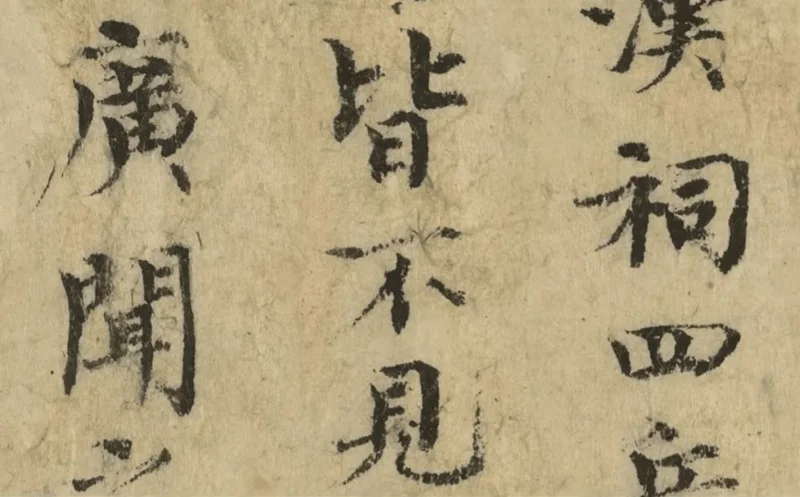 漢祠四
皆不見
廣聞